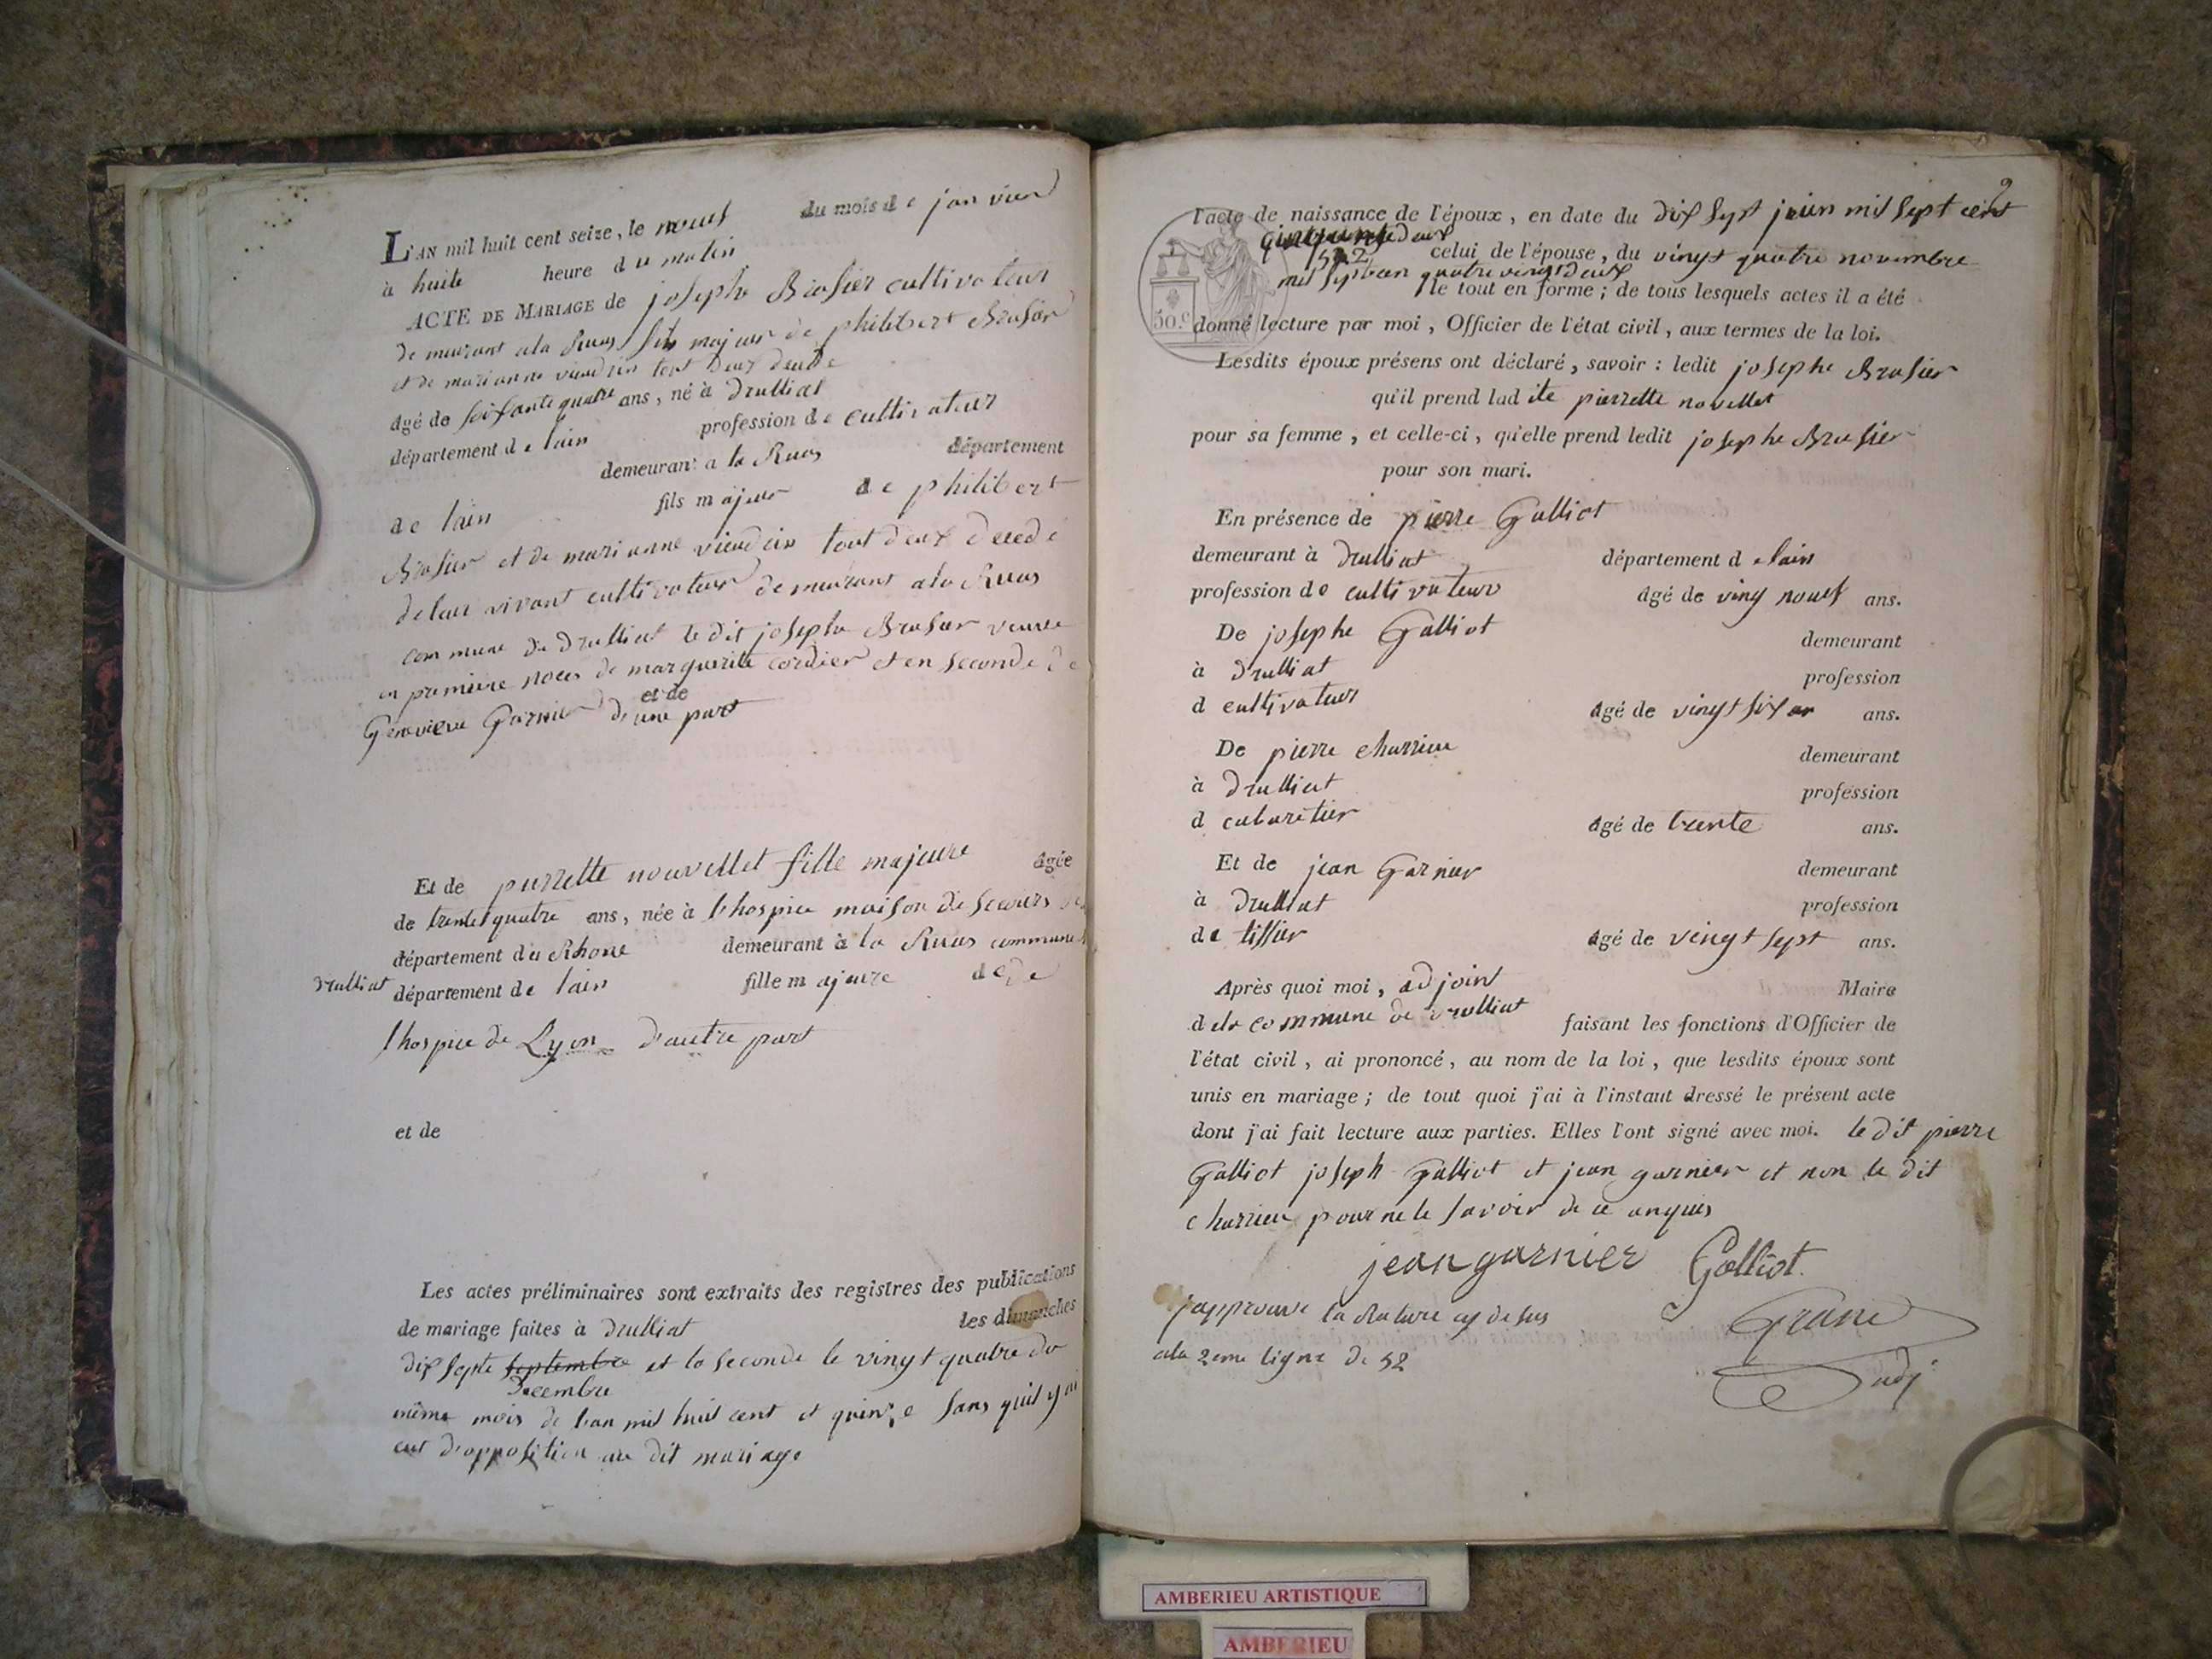 L'AN mil huit cent seize, le neuf du mois de janvier
à huite heure du matin
ACTE DE MARIAGE de josephe Brasier cultivateur
demeurant ala Ruas fils majeur de philibert Brasier
et de marianne vieudrin tout deux
agé de soixante quatre ans, né à Drulliat
département de lain profession de cultivateur
demeurant a la Ruas département
de lain fils majeur de philibert
Brasier et de marianne vieudrin tout deux decedé
deleur vivant cultivateur demeurant ala Ruas
commune de Drulliat le dit josephe Brasier
en premiere noces de marguerite cordier et en seconde de
et de
Genevieve Garnier d'une part
Et de pierrette nouvellet fille majeure agée
de trente quatre ans, née à lhospice maison de secours
département du Rhone demeurant à la Ruas commune
drulliat département de lain fille majeure de de
lhospice de Lyon d'autre part
et de
Les actes préliminaires sont extraits des registres des publications
de mariage faites à Drulliat les dimanches
dix septe septembre et la seconde le vingt quatre du
Decembre
même mois de lan mil huit cent et quinze sans quil y ai
eut d'opposition au dit mariage
9
l'acte de naissance de l'époux, en date du dix sept juin mil sept cent
cinquante deux
52 celui de l'épouse, du vingt quatre novembre
mil sept cen quatre vingt deux
le tout en forme; de tous lesquels actes il a été
50.c donné lecture par moi, Officier de l'état civil, aux termes de la loi.
Lesdits époux présens ont déclaré, savoir : ledit josephe Brasier
qu'il prend ladite pierrette novellet
pour sa femme, et celle-ci, qu'elle prend ledit josephe Brasier
pour son mari.
En présence de pierre Galliot
demeurant à Drulliat département de lain
profession de cultivateur agé de ving neuf ans.
De josephe Galliot demeurant
à drulliat profession
d cultivateur agé de vingt six ans.
De pierre charrieu demeurant
à Drulliat profession
d cabaretier agé de trente ans.
Et de jean Garnier demeurant
à Drulliat profession
de tissier agé de vingt sept ans.
Après quoi moi, adjoint Maire
dela commune de drulliat faisant les fonctions d'Officier de
l'état civil, ai prononcé, au nom de la loi, que lesdits époux sont
unis en mariage; de tout quoi j'ai à l'instant dressé le présent acte
dont j'ai fait lecture aux parties. Elles l'ont signé avec moi. le dit pierre
Galliot joseph Galliot et jean garnier et non le dit
charrieu pour ne le savoir de ce anquis
jean garnier Galliot
japprouve la rature cy desus
Grane
ala 2eme ligne de 52
adj
AMBERIEU ARTISTIQUE
AMBERIEU